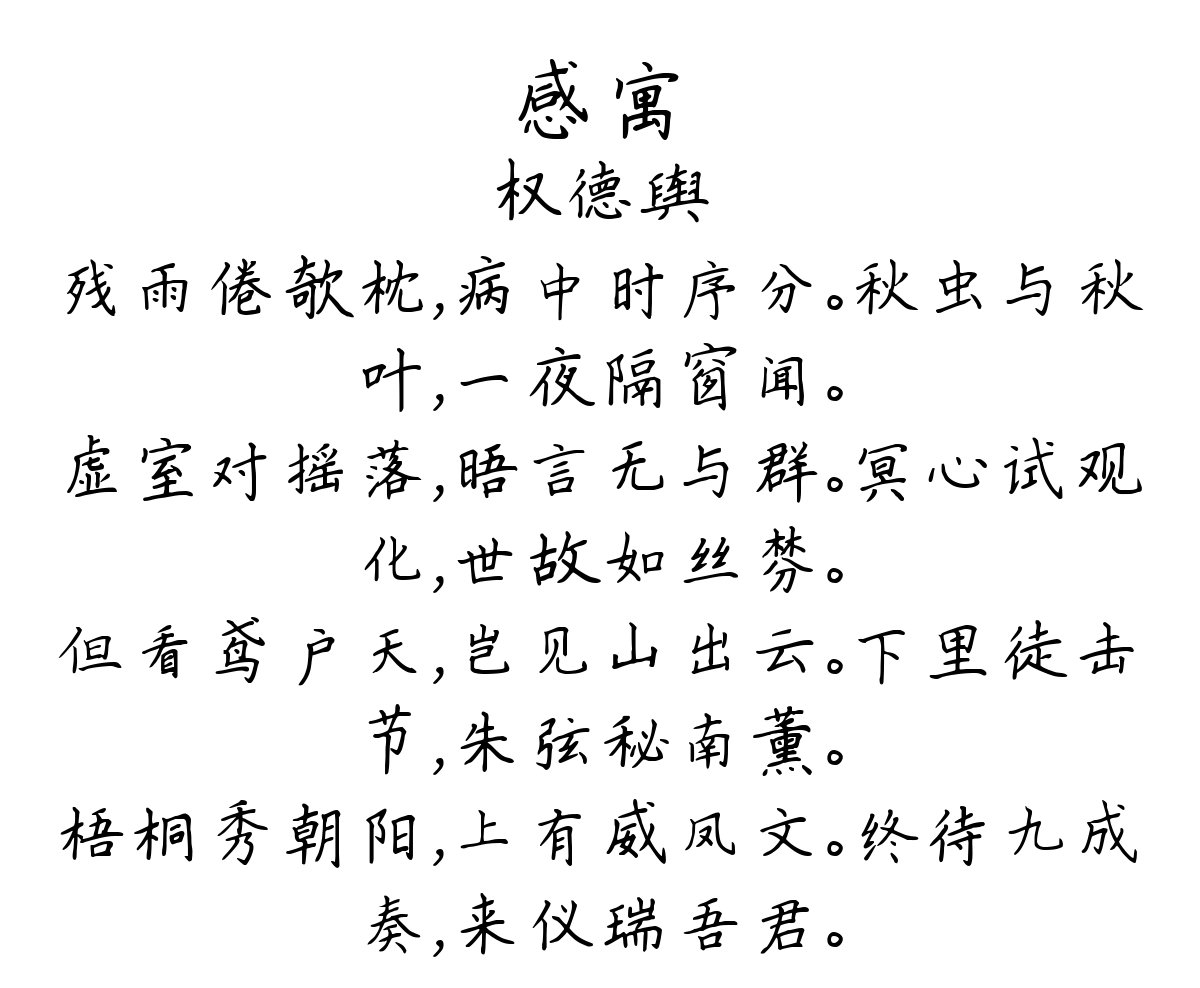 感寓
权德舆
残雨倦欹枕,病中时序分。秋虫与秋
叶,一夜隔窗闻。
虚室对摇落,晤言无与群。冥心试观
化,世故如丝棼。
但看鸢户天,岂见山出云。下里徒击
节,朱弦秘南薰。
梧桐秀朝阳,上有威凤文。终待九成
奏,来仪瑞吾君。